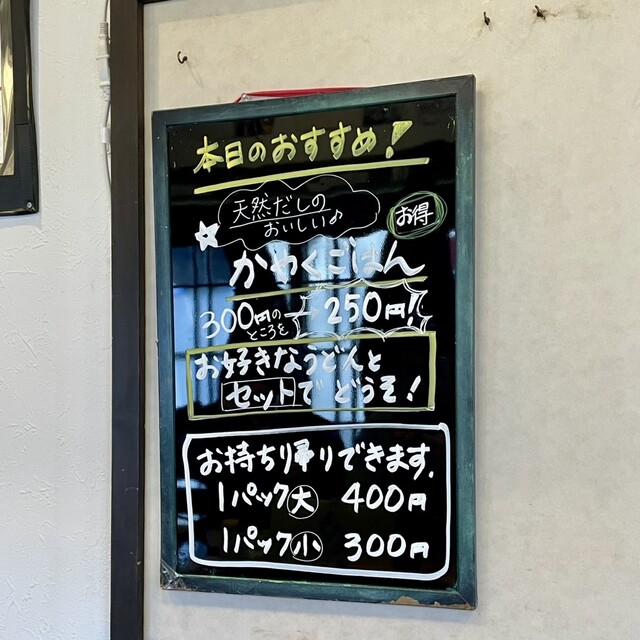 本日のおすすめ!
天然だしの
おいしい♪
お得
かやくごはん
300円の
ところを
→ 250円!!
お好きなうどんと
セットでどうぞ!
お持ち帰りできます.
1パック大 400円
1パック小 300円